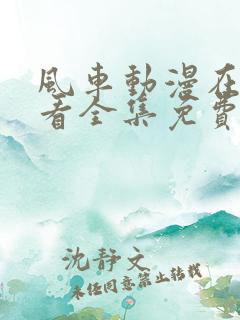 风车動漫在
看全集免費
沈靜文
未经同意禁止转载